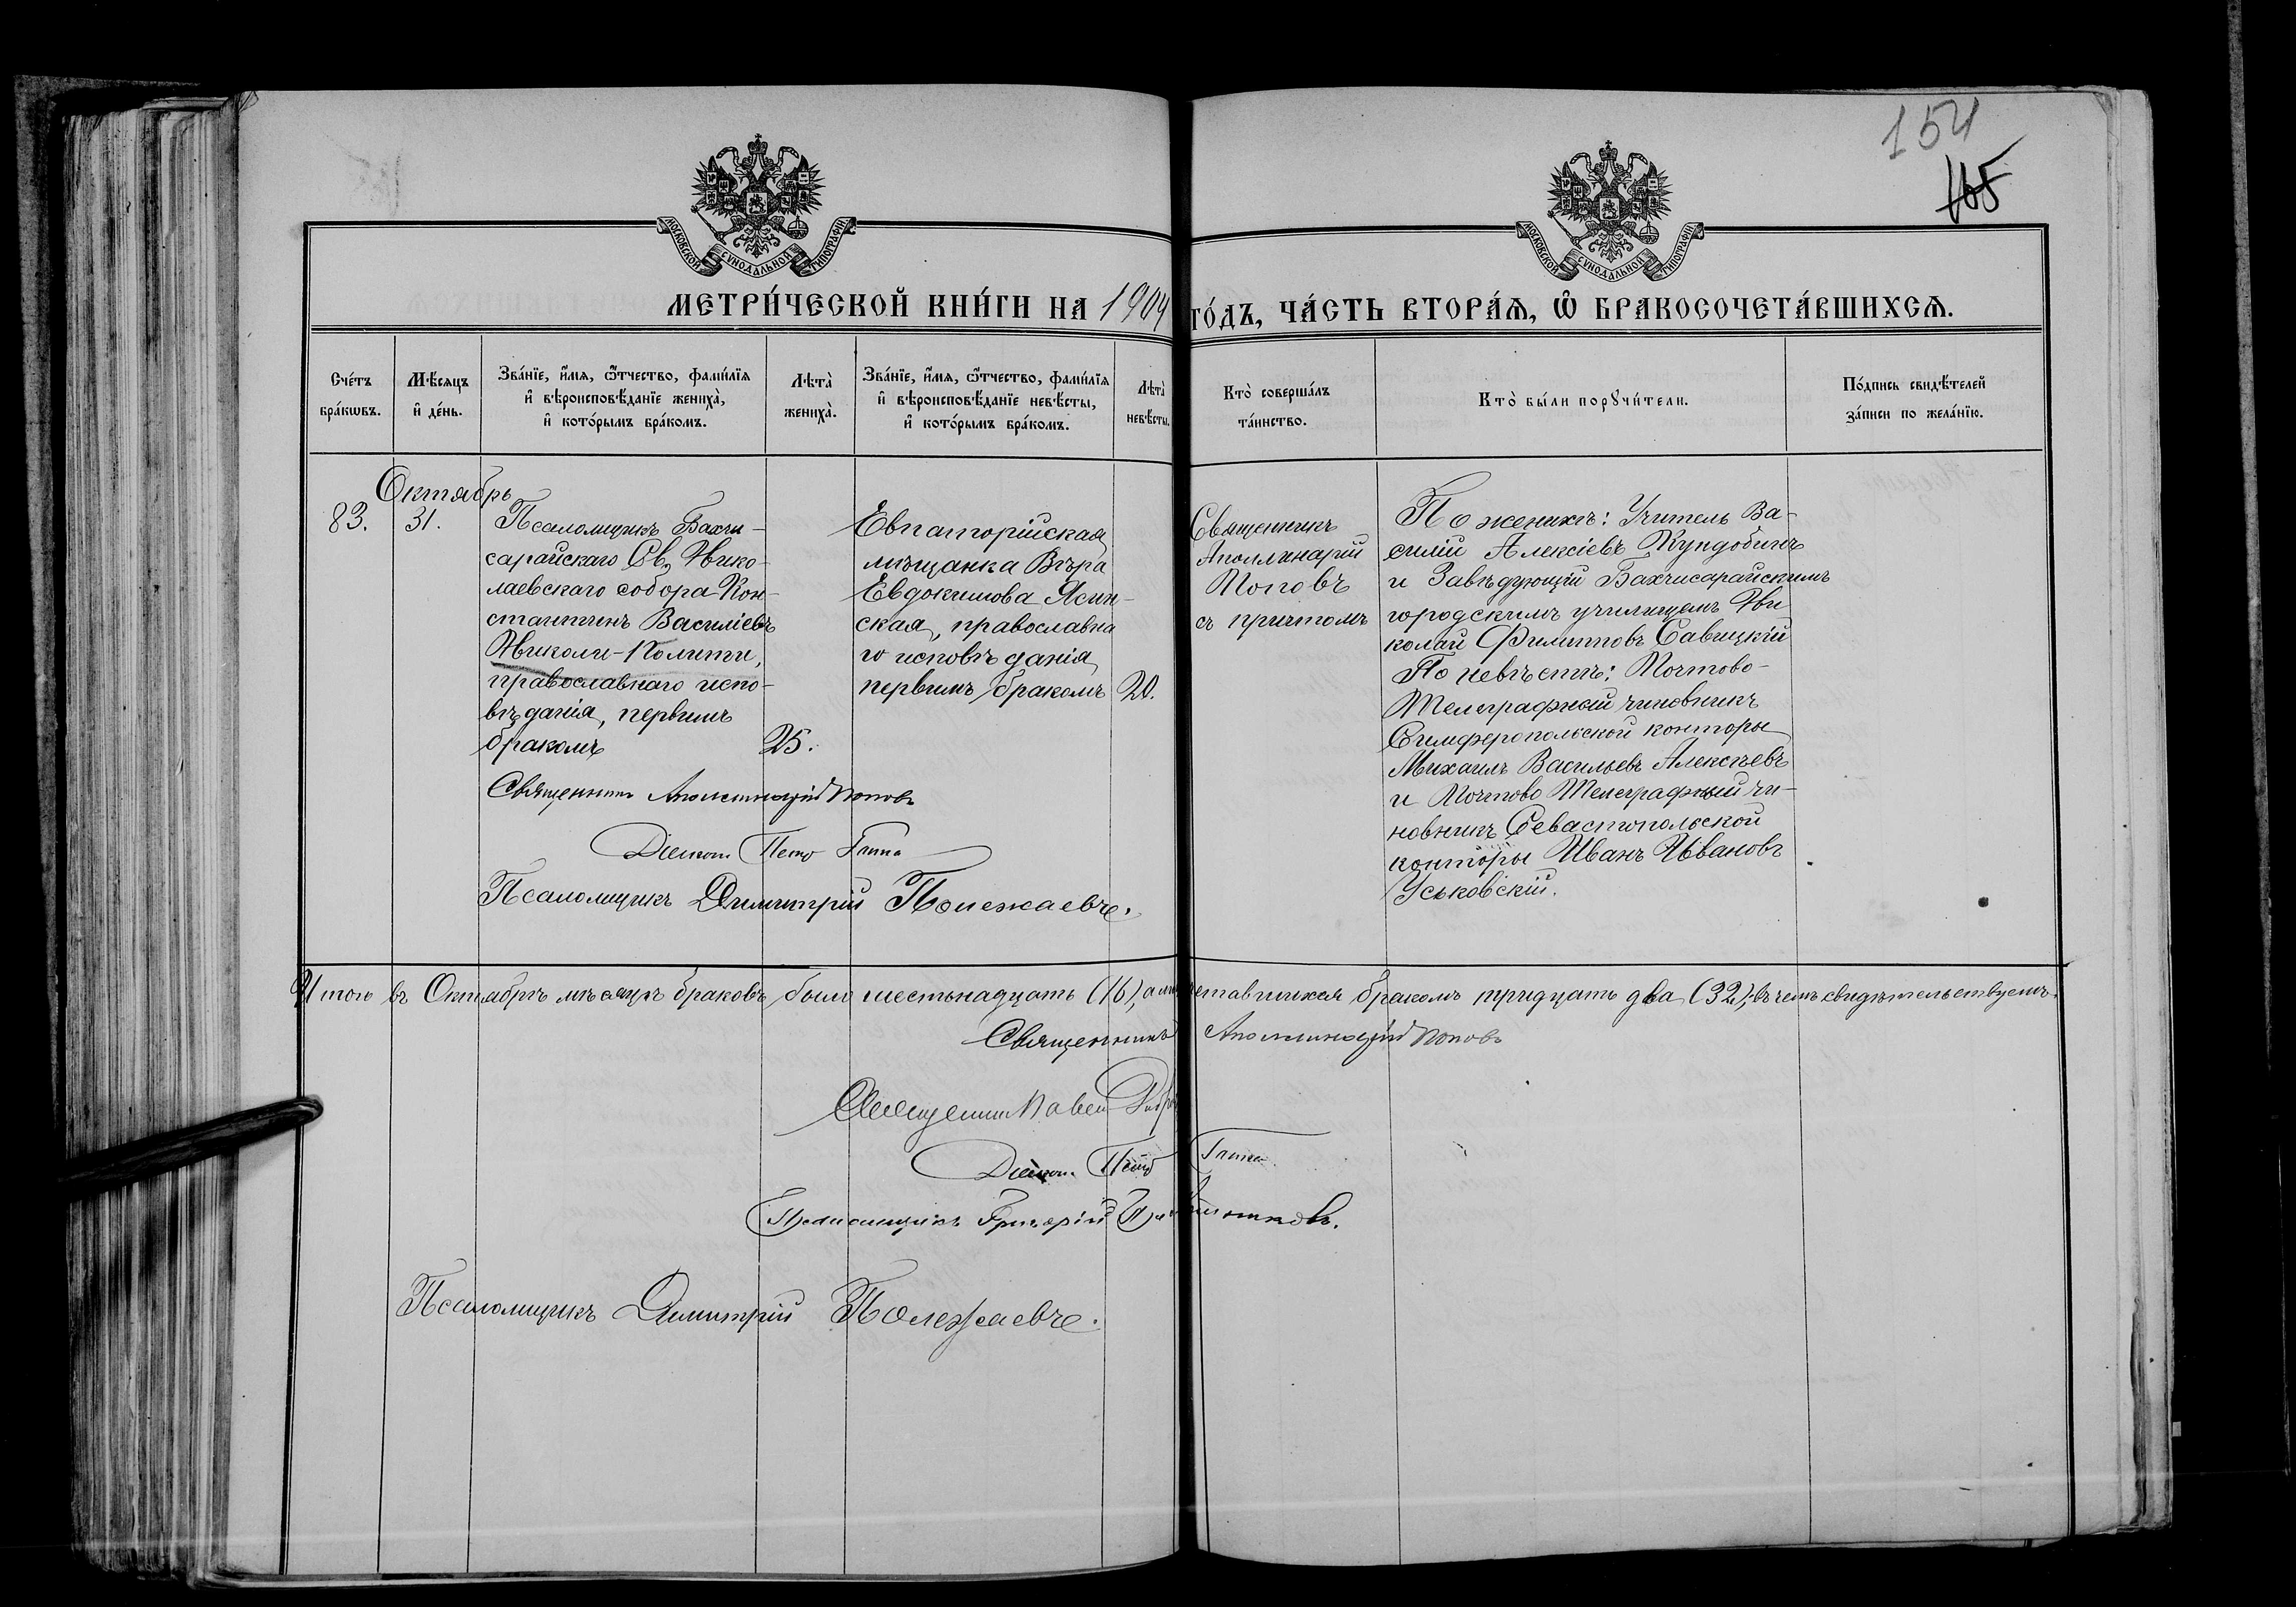 154
165
МОСКОВСКОЙ СУНОДАЛЬНОЙ ТИПОГРАФІИ
МОСКОВСКОЙ СУНОДАЛЬНОЙ ТИПОГРАФІИ
МЕТРИ́ЧЕСКОЙ КНИ́ГИ НА 1904 ГО́ДЪ, ЧА́СТЬ ВТОРА́Ѧ, Ѿ БРАКОСОЧЕТА́ВШИХСѦ.
Сче́тъ
бра́кѡвъ.
Мѣ́сяцъ
и҆ де́нь.
Зва́нїе, и҆́мя, ѻ҆́тчество, фами́лїя
и҆ вѣроисповѣ́данїе жениха̀,
и҆ кото́рымъ бра́комъ.
Лѣта̀
жениха̀.
Зва́нїе, и҆́мя, ѻ҆́тчество, фами́лїя
и҆ вѣроисповѣ́данїе невѣ́сты,
и҆ кото́рымъ бра́комъ.
Лѣта̀
невѣ́сты.
Кто̀ соверша́лъ
та́инство.
Кто̀ бы́ли порꙋчи́тели.
По́дпись свидѣ́телей
за́писи по жела́нїю.
Октябрь
83.
31.
Псаломщикъ Бахчи-
сарайскаго Св. Нико-
лаевскаго собора Кон-
стантинъ Василіевъ
Николи-Полити,
православнаго испо-
вѣданія, первымъ
бракомъ
25.
Евпаторійская
мѣщанка Вѣра
Евдокимова Ясин-
ская, православна
го исповѣданія
первымъ бракомъ
20.
Священникъ
Аполлинарій
Поповъ
съ причтомъ
По женихѣ: Учитель Ва-
силій Алексіевъ Кундобинъ
и Завѣдующій Бахчисарайскимъ
городскимъ училищемъ Ни
колай Филипповъ Савицкій
По невѣстѣ: Почтово-
Телеграфный чиновникъ
Симферопольской конторы
Михаилъ Васильевъ Алексѣевъ
и Почтово Телеграфный чи-
новникъ Севастопольской
конторы Иванъ Ивановъ
Уськовскій.
Священникъ Аполлинарій Поповъ
Діаконъ Петръ
Псаломщикъ Димитрій Полежаевъ.
Итого въ Октябрѣ мѣсяцѣ браковъ было шестьнадцать (16), а бракомъ тридцать два (32); въ чемъ свидѣтельствуемъ.
Священникъ Аполлинарій Поповъ
Священникъ Павелъ
Діаконъ Петръ
Псаломщикъ Григорій
Псаломщикъ Димитрій Полежаевъ.